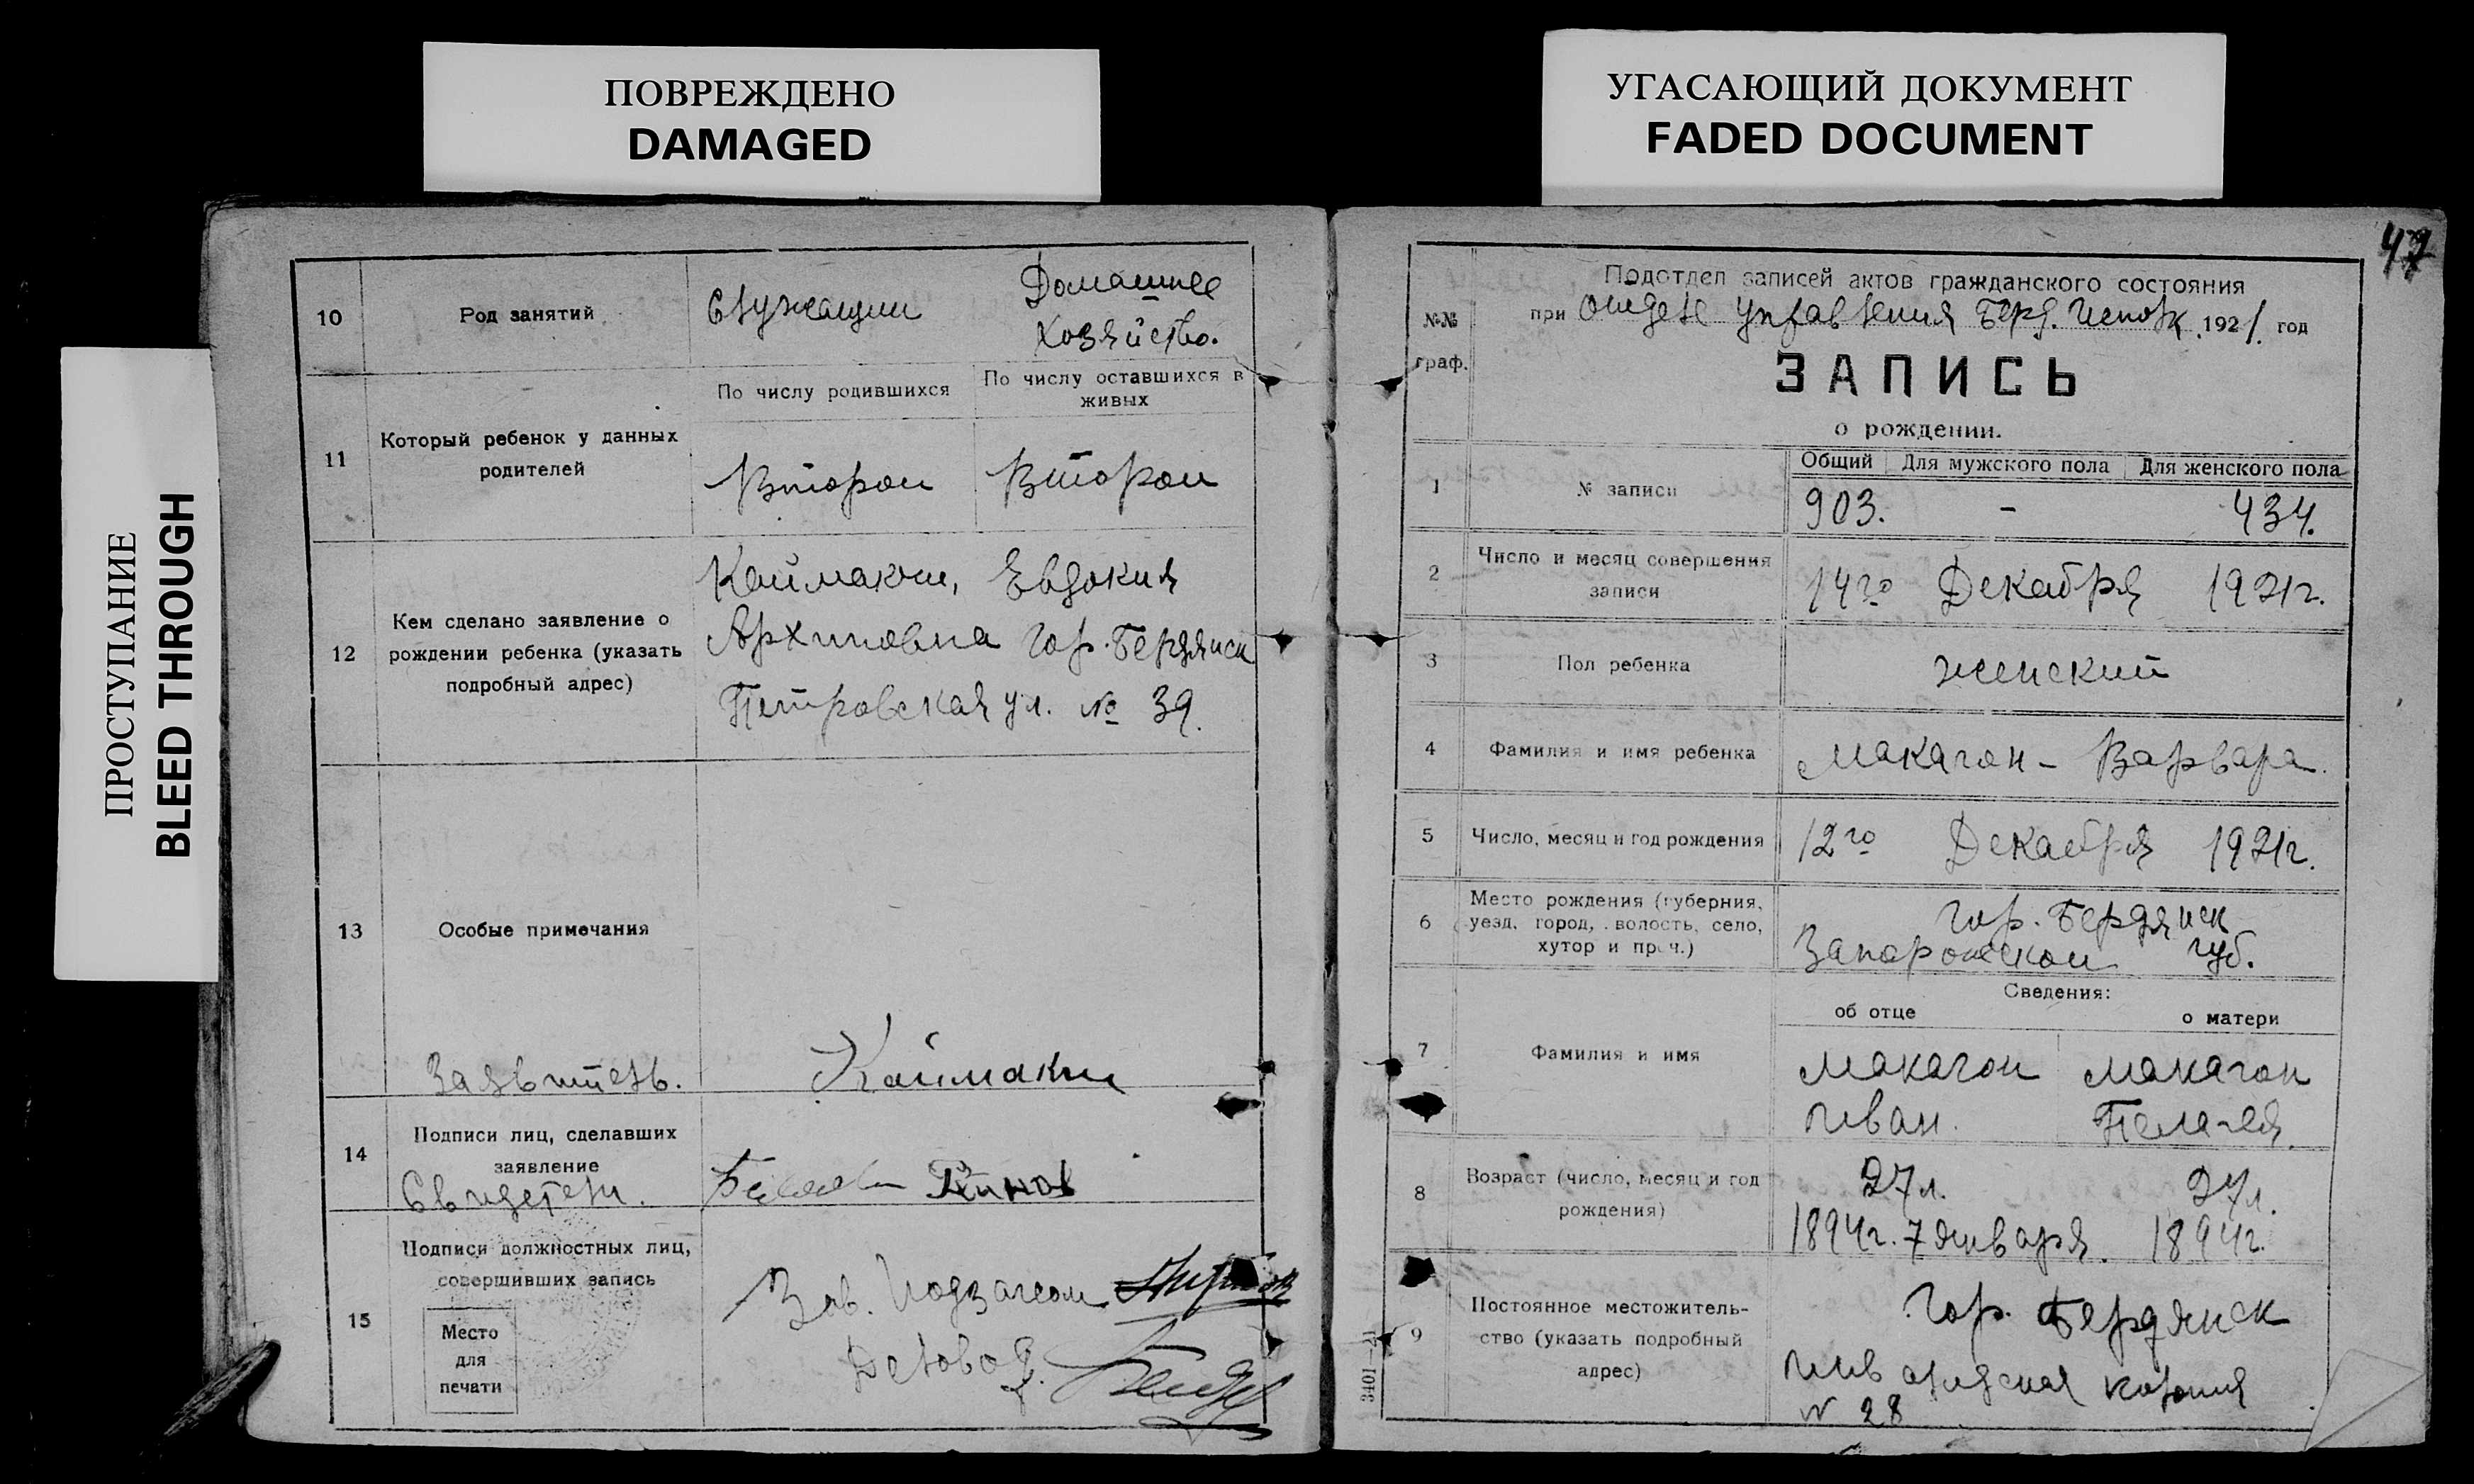 ПОВРЕЖДЕНО
DAMAGED
УГАСАЮЩИЙ ДОКУМЕНТ
FADED DOCUMENT
ПРОСТУПАНИЕ
BLEED THROUGH
10
Род занятий
Служащий
Домашнее
хозяйство.
11
Который ребенок у данных
родителей
По числу родившихся
По числу оставшихся в
живых
Второй
Второй
12
Кем сделано заявление о
рождении ребенка (указать
подробный адрес)
Каймакчи, Евдокия
Архиповна гор. Бердянск
Петровская ул. № 39.
13
Особые примечания
Заявитель.
14
Подписи лиц, сделавших
заявление
Свидетели.
15
Подписи должностных лиц,
совершивших запись
Место
для
печати
Зав. Подзагсом
Деловод.
47
№№
граф.
Подотдел записей актов гражданского состояния
при Отделе Управления Берд. Исполк. 1921 год
ЗАПИСЬ
о рождении.
1
№ записи
Общий Для мужского пола Для женского пола
903. - 434.
2
Число и месяц совершения
записи
14го Декабря 1921г.
3
Пол ребенка
женский
4
Фамилия и имя ребенка
Макагон - Варвара.
5
Число, месяц и год рождения
12го Декабря 1921г.
6
Место рождения (губерния,
уезд, город, волость, село,
хутор и проч.)
гор. Бердянск
Запорожской губ.
7
Фамилия и имя
Сведения:
об отце
о матери
Макагон
Иван.
Макагон
Пелагея.
8
Возраст (число, месяц и год
рождения)
27 л.
1894г. 7 января.
27 л.
1894г.
9
Постоянное местожитель-
ство (указать подробный
адрес)
Гор. Бердянск
колония
№ 28